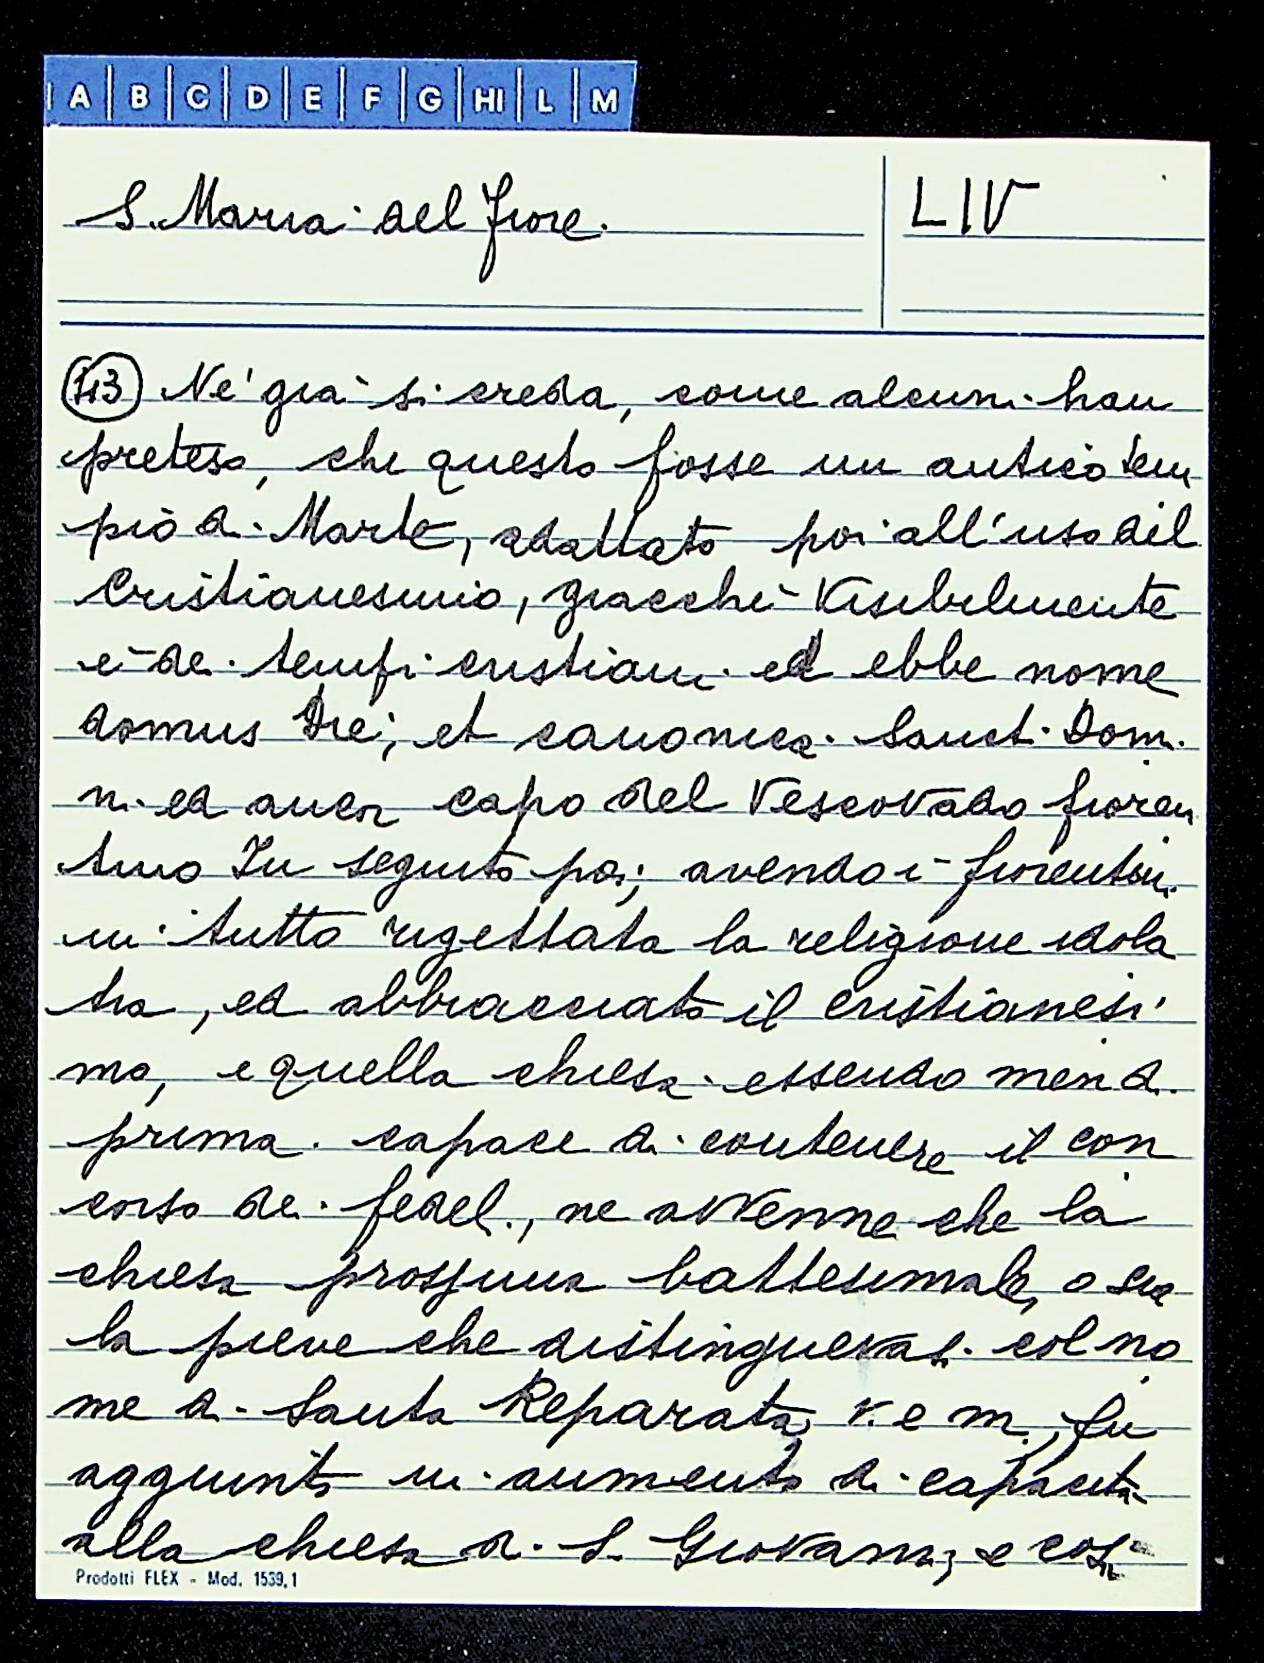 A B C D E F G HI L M
S. Maria del Fiore.
LIV
43 Nè già si creda, come alcuni han
preteso, che questo fosse un antico tem
pio di Marte, adattato poi all'uso del
Cristianesimo, giacchè visibilmente
è de tempi cristiani ed ebbe nome
domus Dei, et canonica Sanct. Dom.
ni ed ancor capo del Vescovado fioren
tino In seguito poi, avendo i fiorentini
in tutto rigettata la religione idola
tra, ed abbracciato il cristianesi
mo, e quella chiesa essendo men di
prima capace di contenere il con
corso dei fedeli, ne avvenne che la
chiesa prossima battesimale, o sia
la pieve che distinguevasi col no
me di Santa Reparata v. e m., fu
aggiunta in aumento di capacità
alla chiesa di S. Giovanni, e così
Prodotti FLEX - Mod. 1539,1